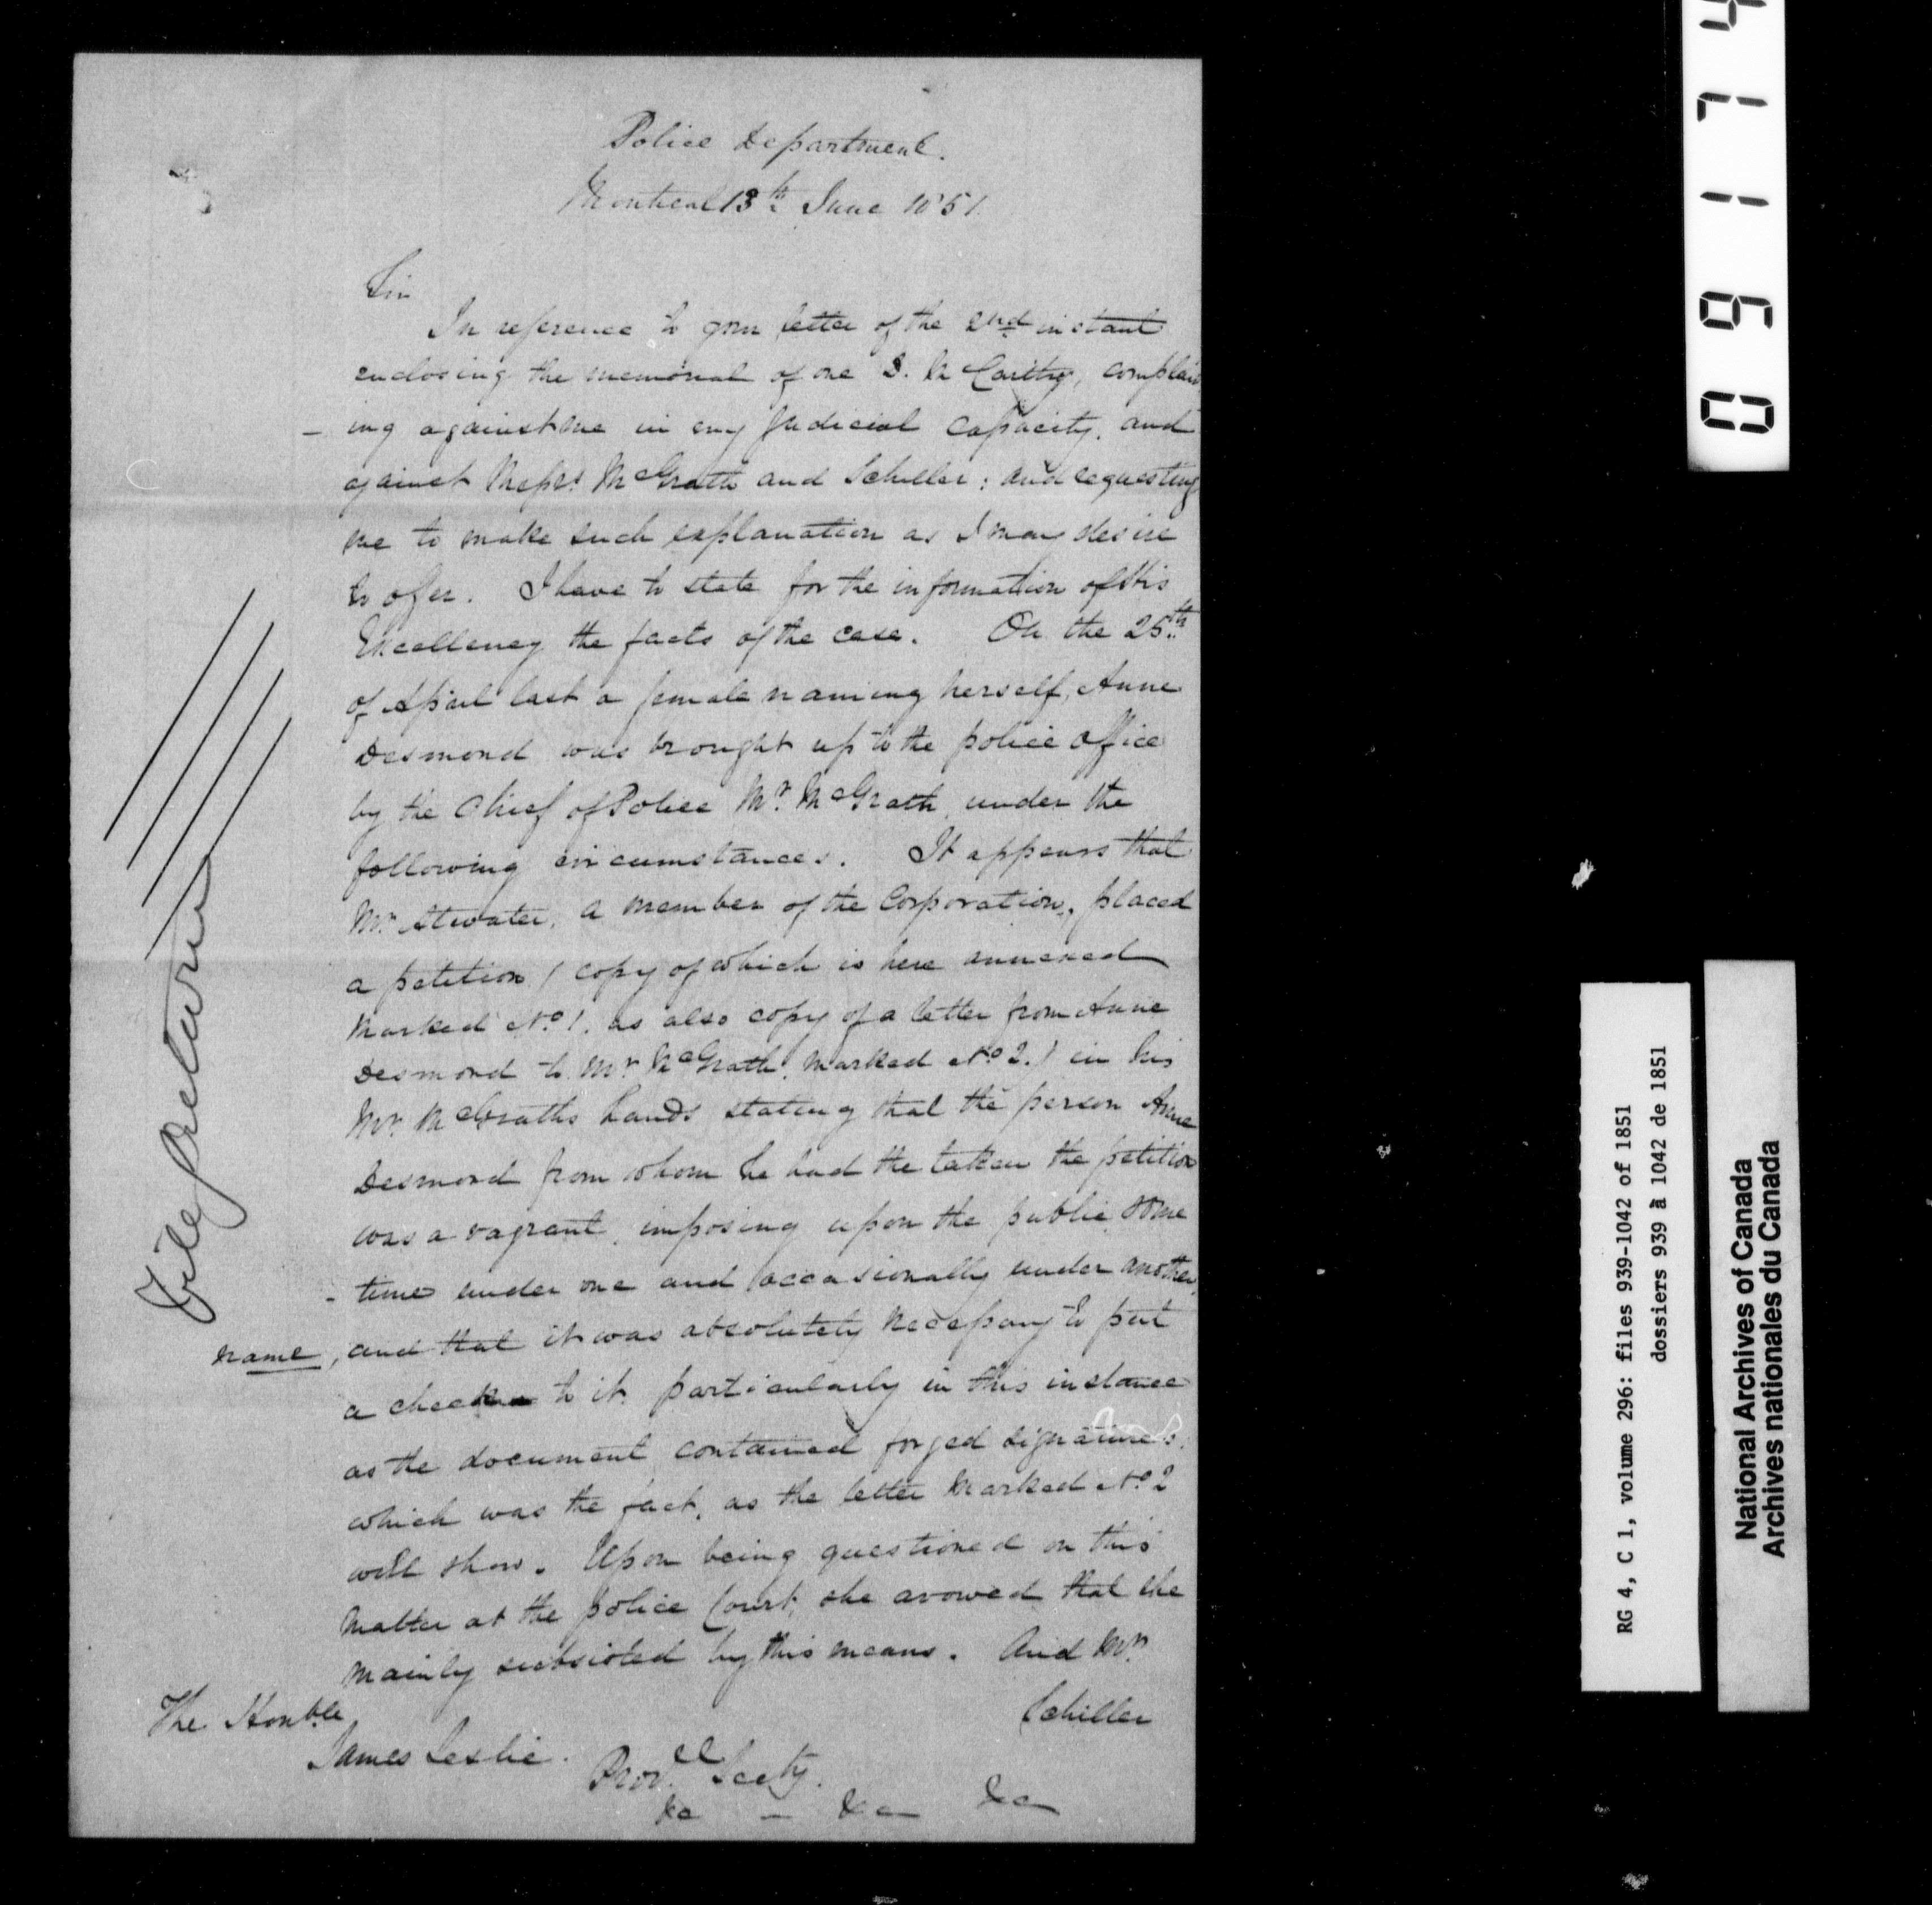 Police Department.
Montreal 13th June 1851.
Sir
In reference to your letter of the 2nd instant
enclosing the memorial of one D. McCarthy, complain
- ing against me in my Judicial Capacity, and
against Messrs McGrath and Schiller; and requesting
me to make such explanation as I may desire
to offer. I have to state for the information of His
Excellency the facts of the case. On the 25th
of April last a female naming herself, Anne
Desmond was brought up to the police office
by the Chief of Police Mr. McGrath, under the
following circumstances. It appears that
Mr. Atwater, a member of the Corporation, placed
a petition (copy of which is here annexed
marked No. 1. as also copy of a letter from Anne
Desmond to Mr McGrath, marked No 2.) in his
Mr. McGraths hands stating that the person Anne
Desmond from whom he had the taken the petition
was a vagrant, imposing upon the public some
- times under one and occasionally under another
name, and that it was absolutely necessary to put
a check to it, particularly in this instance
as the document contained forged signatures,
which was the fact, as the letter marked No. 2
will show. Upon being questioned on this
matter at the police Court, she avowed that she
mainly subsisted by this means. And Mr.
Schiller
The Honble
James Leslie.
Provl. Secty.
&c - &c &c
File Return
09174
RG 4, C 1, volume 296: files 939-1042 of 1851
dossiers 939 à 1042 de 1851
National Archives of Canada
Archives nationales du Canada